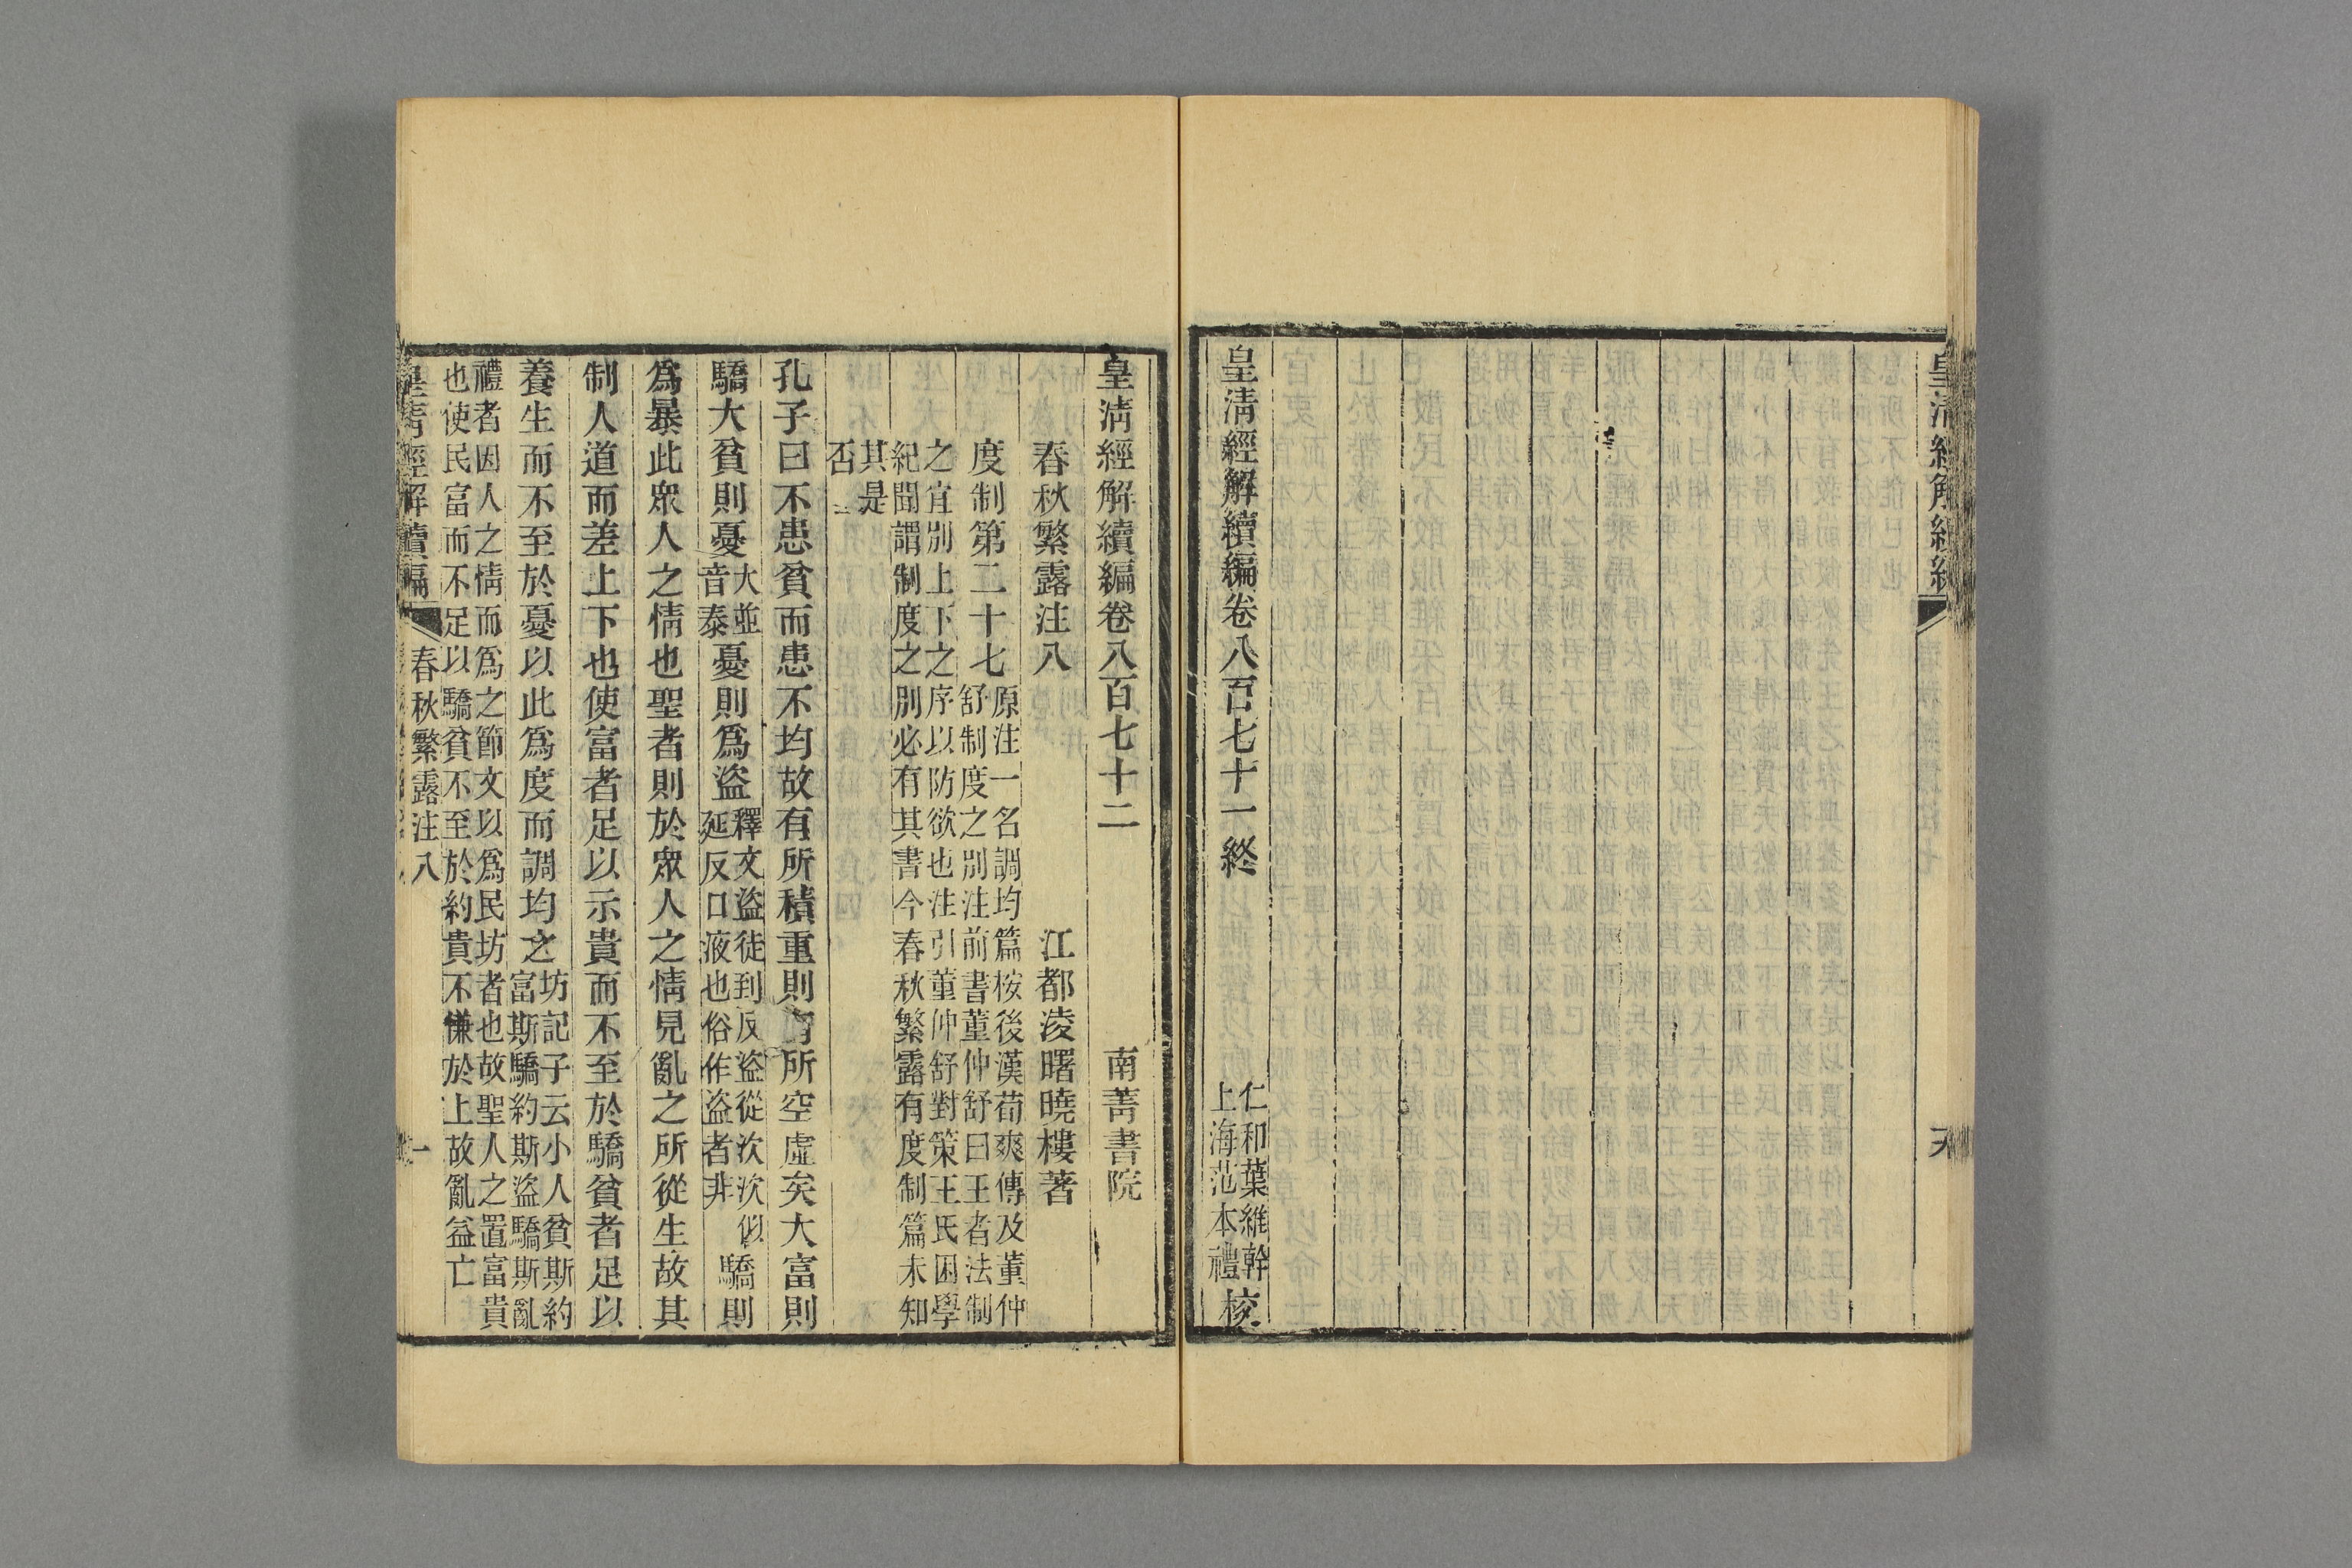 皇清經解續編卷八百七十一終
仁和葉維幹
上海范本禮
校
皇清經解續編卷八百七十二 南菁書院
春秋繁露注八 江都凌曙曉樓著
度制第二十七
原注一名調均篇桉後漢荀爽傳及董仲
舒制度之別注前書董仲舒曰王者法制
之宜別上下之序以防欲也注引董仲舒對策王氏困學
紀聞謂制度之別必有其書今春秋繁露有度制篇未知
其是
否
孔子曰不患貧而患不均故有所積重則有所空虛矣大富則
驕大貧則憂
大並
音泰
憂則爲盜
釋文盜徒到反盜從㳄㳄似
延反口液也俗作盗者非
驕則
爲暴此眾人之情也聖者則於眾人之情見亂之所從生故其
制人道而差上下也使富者足以示貴而不至於驕貧者足以
養生而不至於憂以此爲度而調均之
坊記子云小人貧斯約
富斯驕約斯盜驕斯亂
禮者因人之情而爲之節文以爲民坊者也故聖人之置富貴
也使民富而不足以驕貧不至於約貴不慊於上故亂益亡
皇清經解續編 春秋繁露注八 一